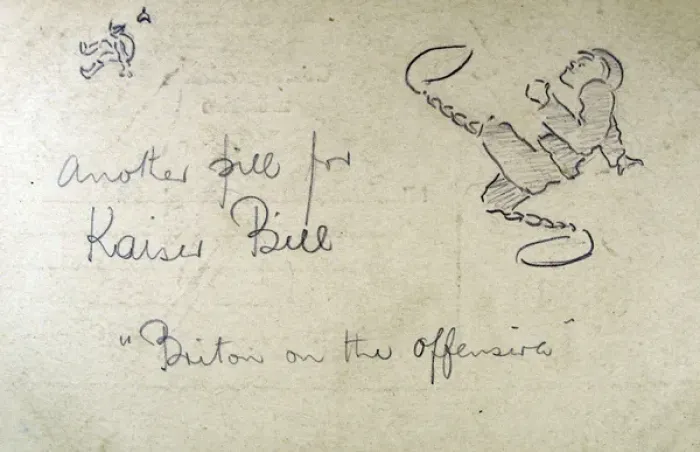 another pill for
Kaiser Bill
"Briton on the offensive"